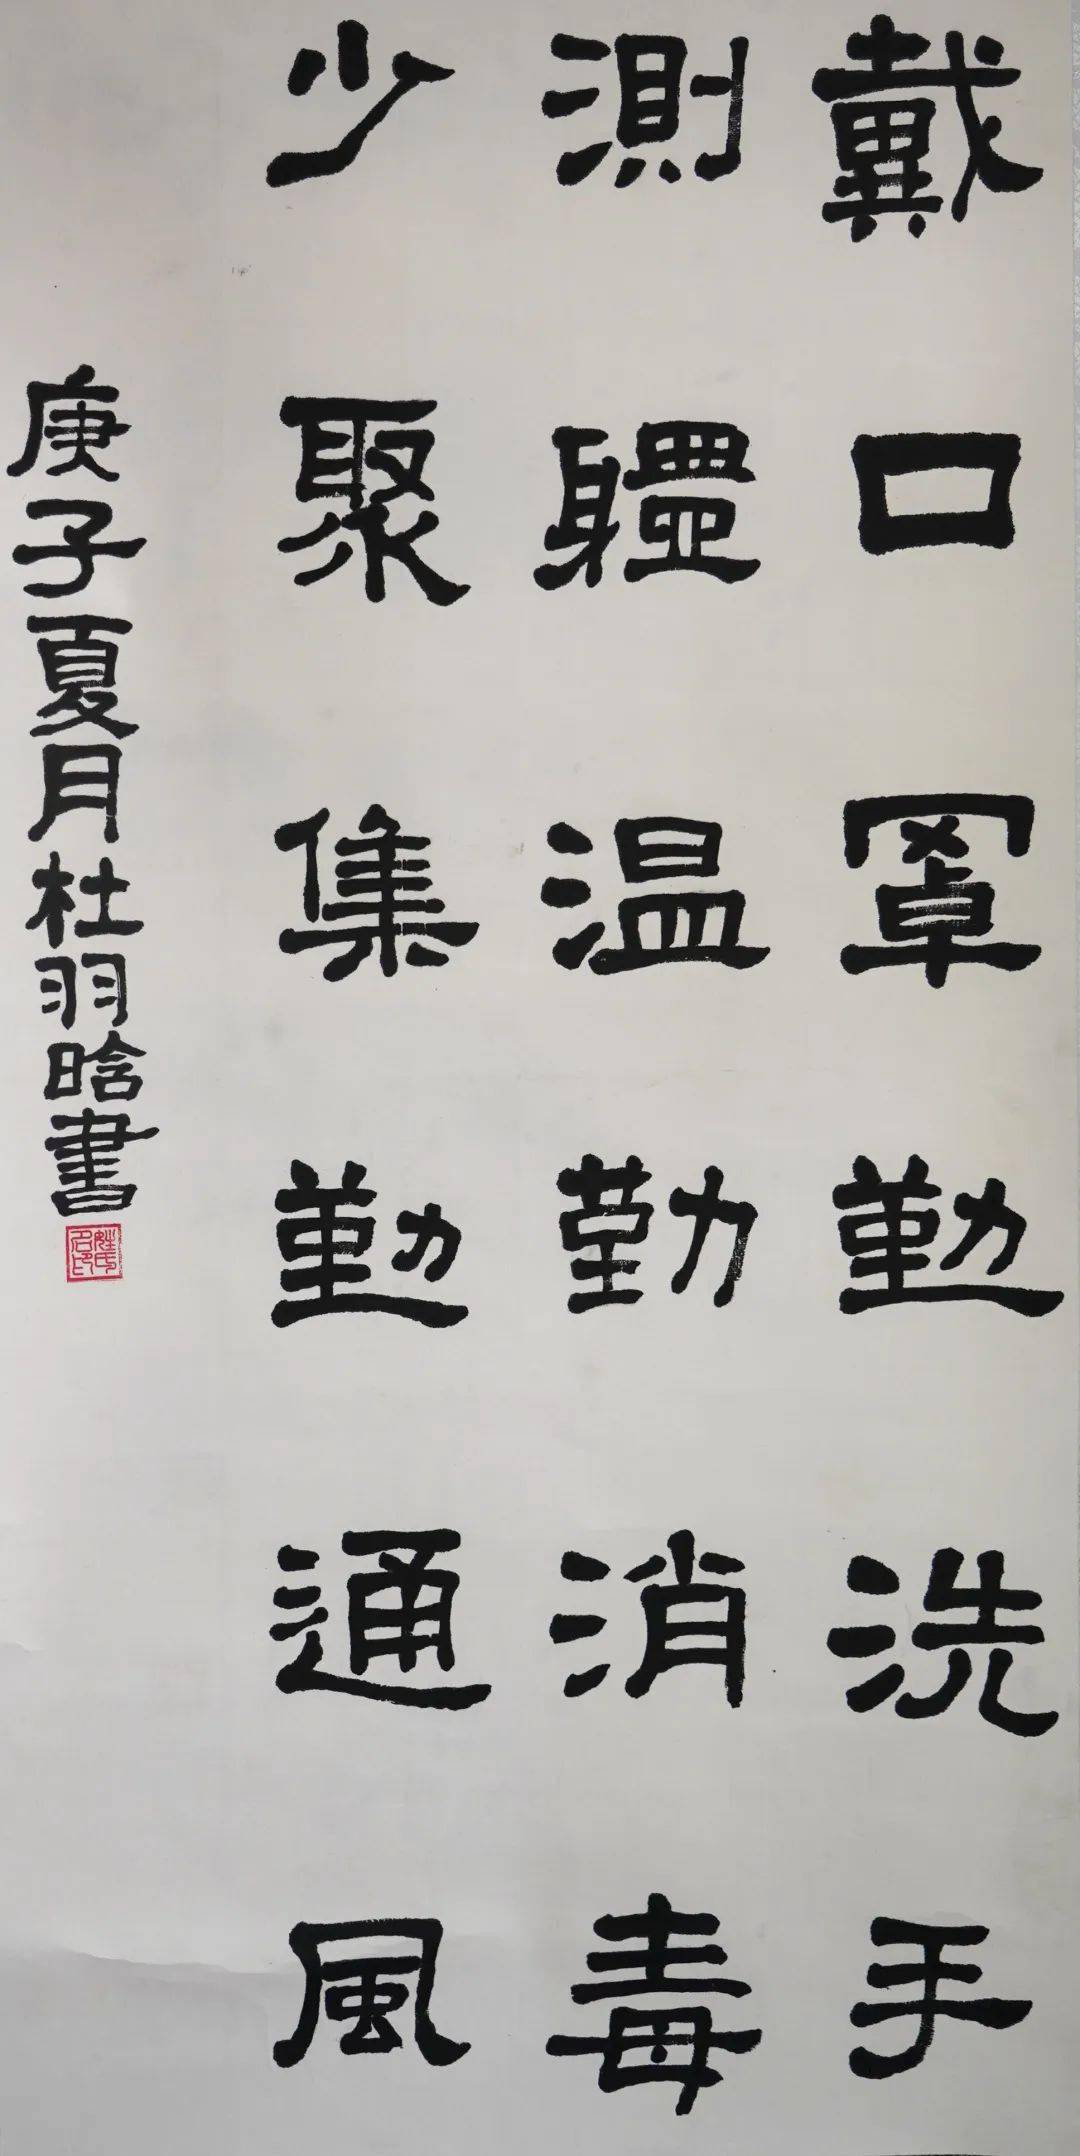 戴口罩勤洗手
測軆温勤消毒
少聚集勤通風
庚子夏月杜羽晗書